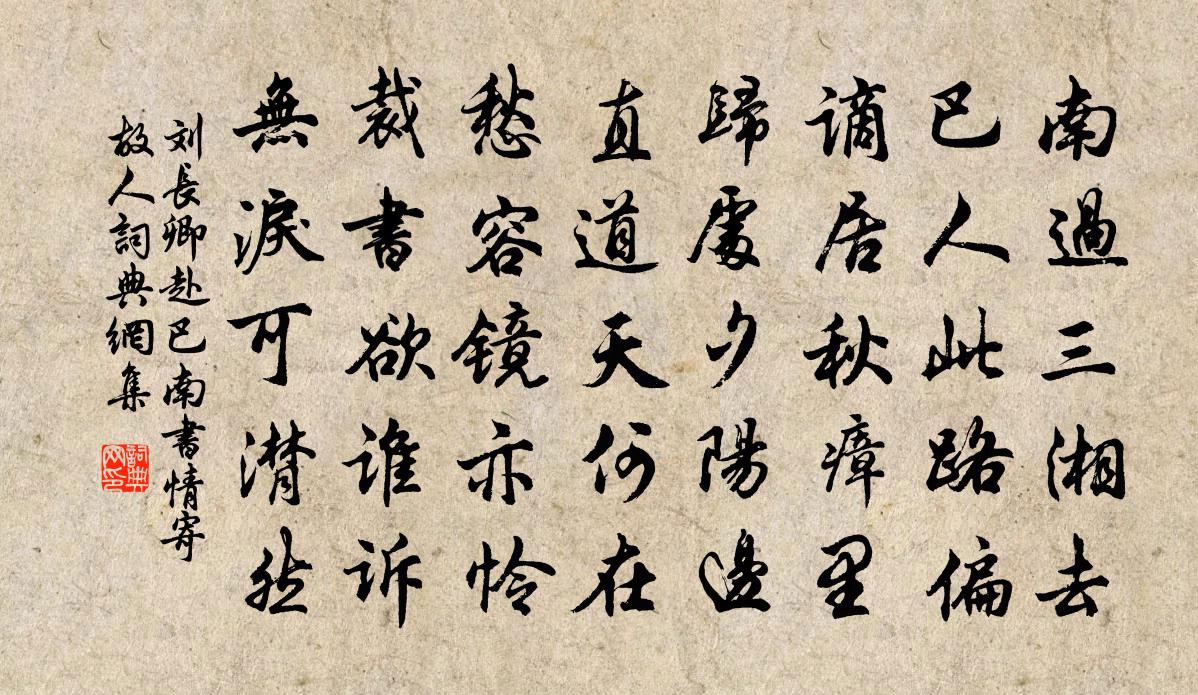 南過三湘去
巴人此路偏
謫居秋瘴里
歸處夕陽邊
直道天何在
愁容鏡亦怜
裁書欲誰訴
無淚可潸然
刘長卿赴巴南書情寄
故人詞典網集
詞典
网印